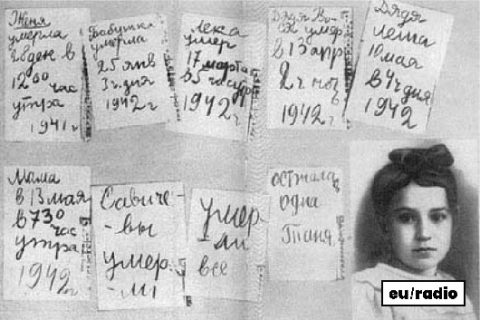 Женя
умерла
28 дек в
12 00 час
утра
1941 г
Бабушка
умерла
25 янв
3 ч. дня
1942 г
Лека
умер
17 марта
в 5 час утр
1942 г
Дядя Ва-
ся умер
в 13 апр
2 ч ноч
1942 г
Дядя
Леша
10 мая
в 4 ч дня
1942
Мама
в 13 мая
в 7 30
час
утра
1942 г
Савиче-
-вы
умер-
-ли
умер-
-ли
все
осталась
одна
Таня
eu/radio